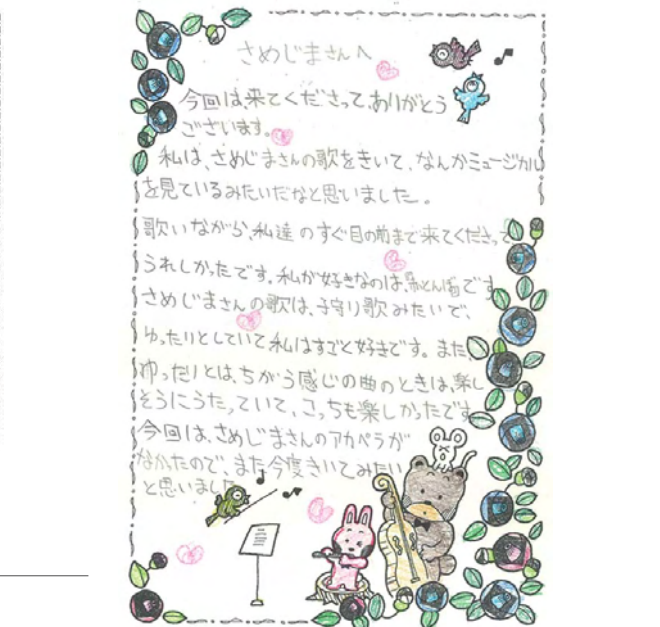 さめじまさんへ
今回は来てくださって、ありがとう
ございます。
私は、さめじまさんの歌をきいて、なんかミュージカル
を見ているみたいだなと思いました。
歌いながら、私達のすぐ目の前まで来てくださって
うれしかったです。私が好きなのは、赤とんぼです
さめじまさんの歌は、子守り歌みたいで、
ゆったりとしていて私はすごく好きです。また、
ゆったりとは、ちがう感じの曲のときは、楽し
そうにうたっていて、こっちも楽しかったです
今回は、さめじまさんのアカペラが
なかったので、また今度きいてみたい
と思いました